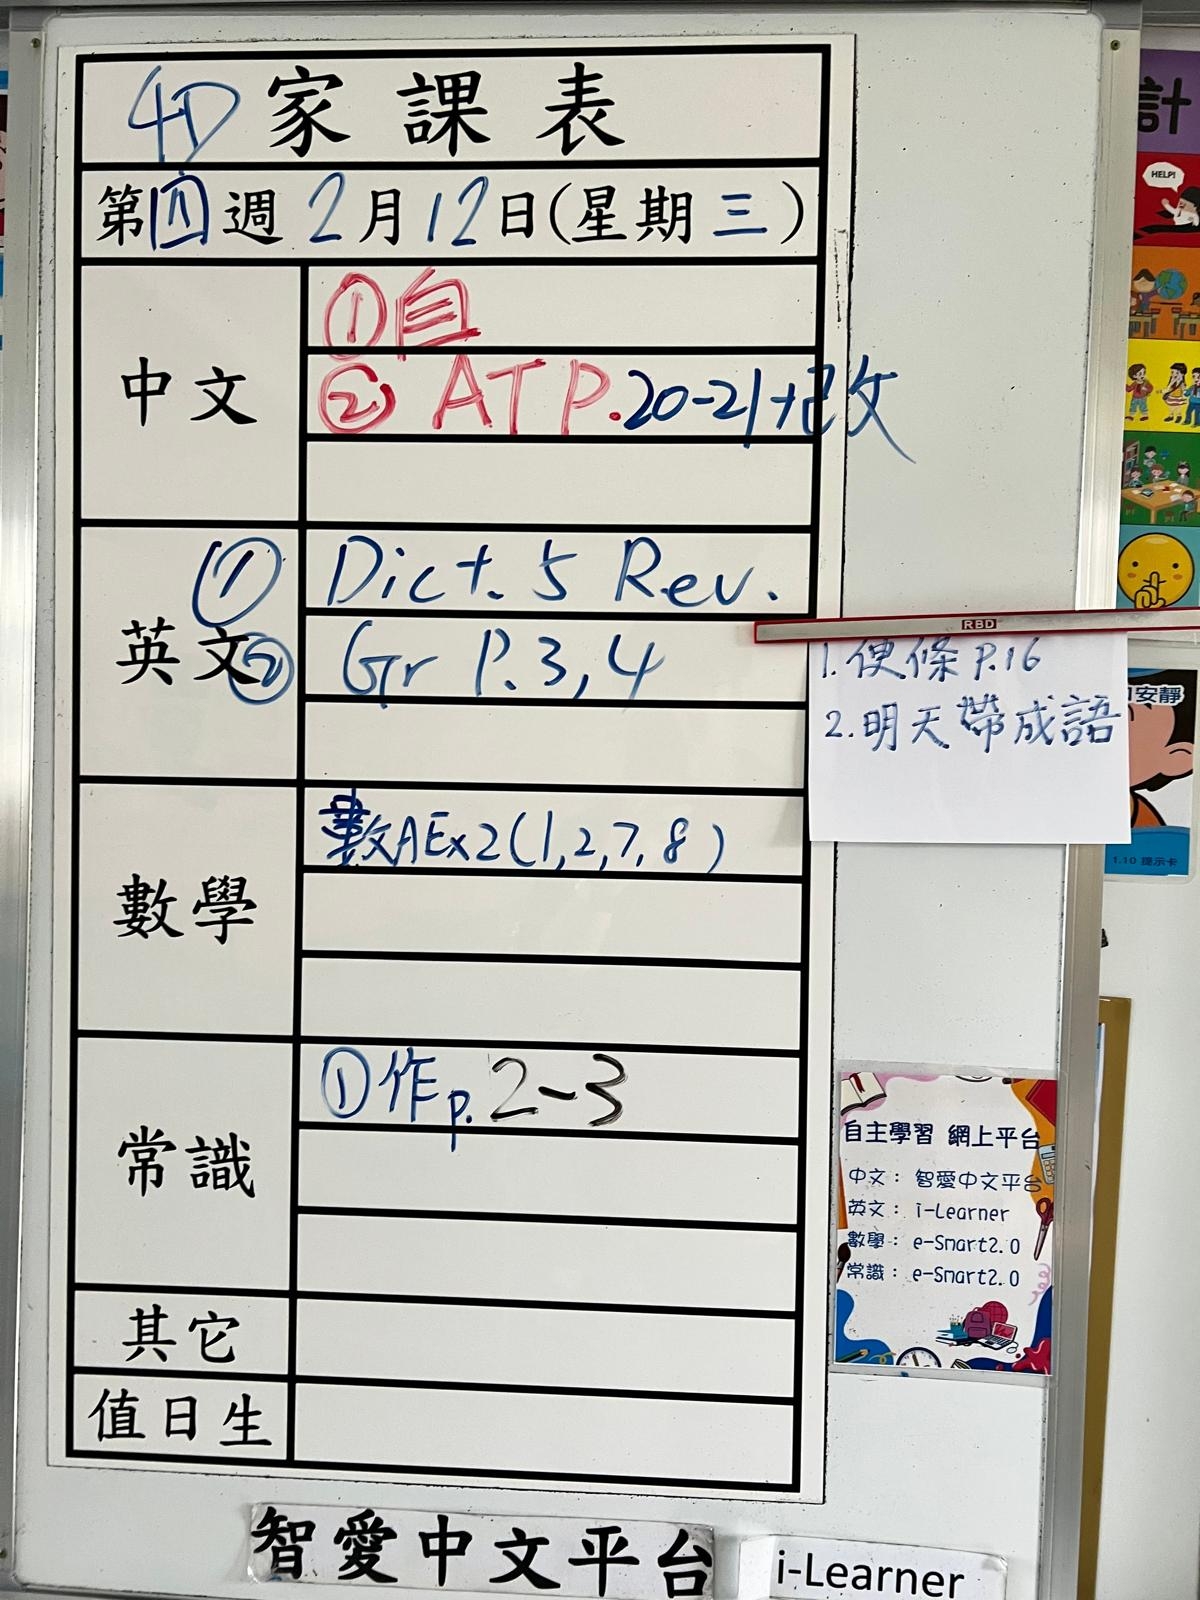 4D 家課表
第四週 2月12日(星期三)
中文
① 自
② ATP.20-21+改
英文
① Dict. 5 Rev.
② Gr P.3,4
1.便條 P.16
2.明天帶成語
數學
數AEx2(1,2,7,8)
常識
① 作p.2-3
其它
值日生
智愛中文平台
i-Learner
自主學習 網上平台
中文： 智愛中文平台
英文： i-Learner
數學： e-Smart2.0
常識： e-Smart2.0
計
HELP!
安靜
1.10 提示卡
RBD